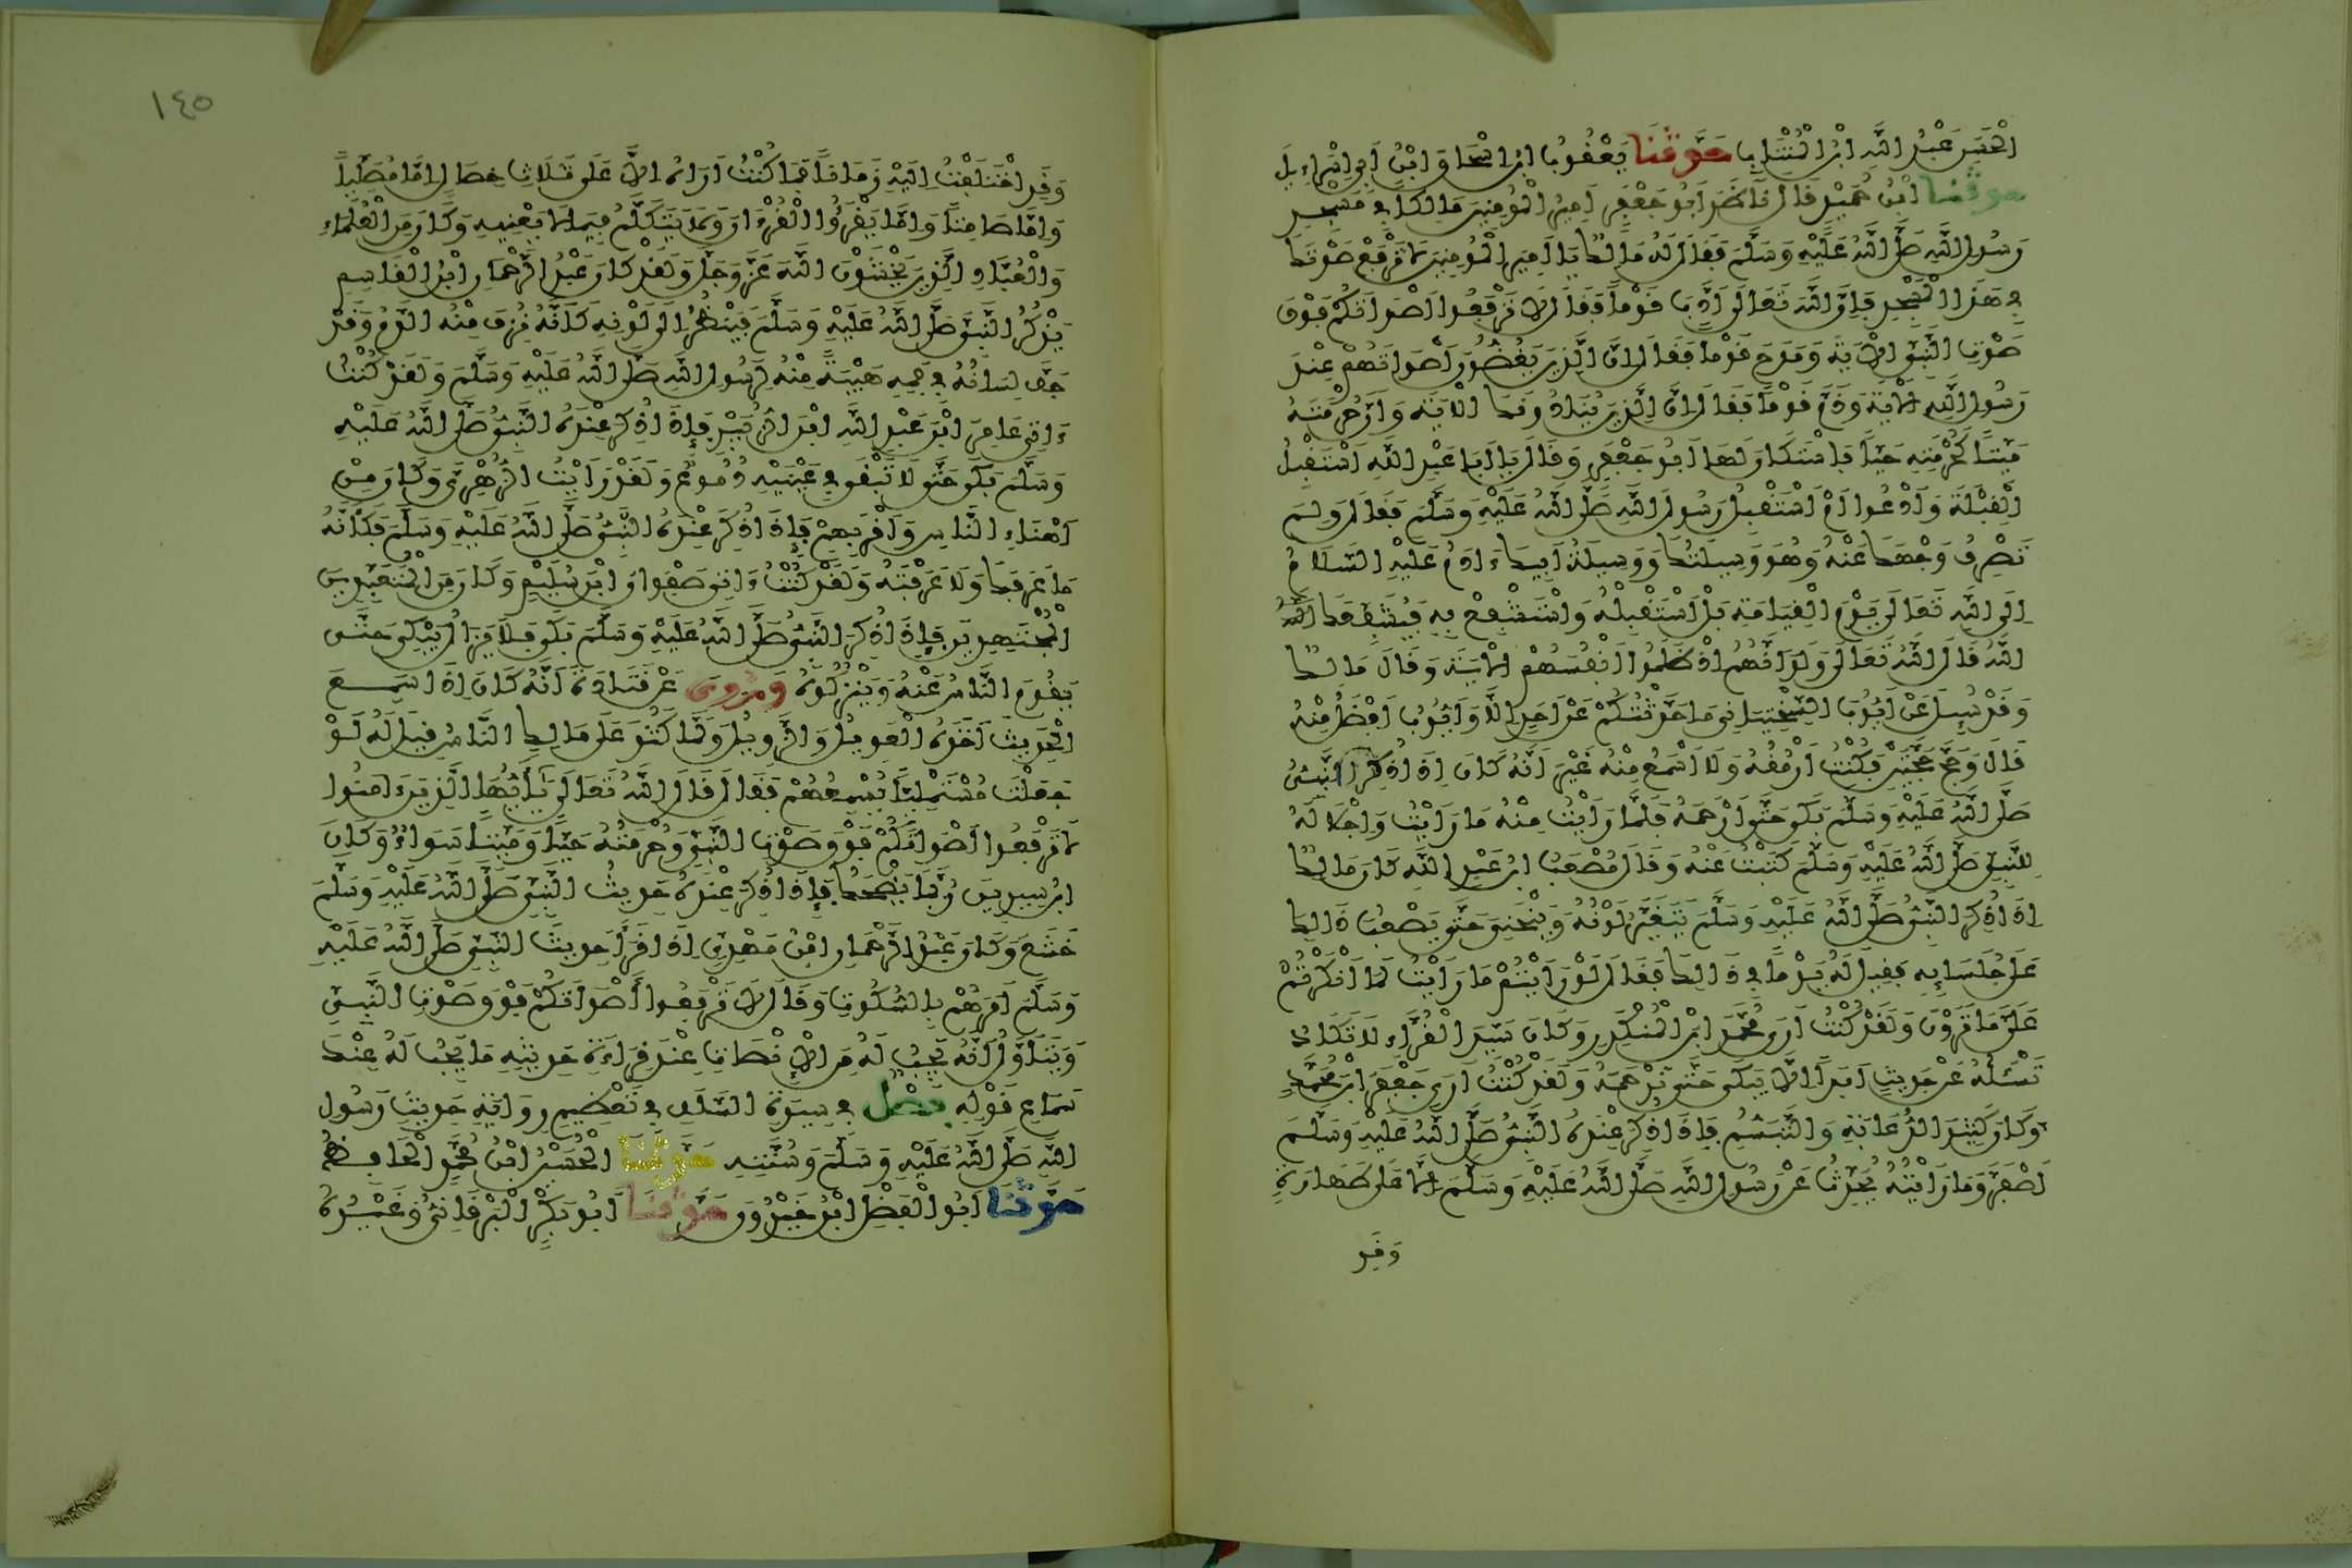 الْحَسَنِ عَبْدُ اللَّهِ ابْنُ الْمُنْتَابِ حَدَّثَنَا يَعْقُوبُ ابْنُ إِسْحَاقَ ابْنُ أَبِي إِسْرَاءِيلَ
حدثنا ابْنُ حُمَيْدٍ قَالَ نَاظَرَ أَبُو جَعْفَرٍ أَمِيرُ الْمُومِنِينَ مَالِكًا فِي مَسْجِدِ
رَسُولِ اللَّهِ صَلَّى اللَّهُ عَلَيْهِ وَسَلَّمَ فَقَالَ لَهُ مَالِكٌ يَا أَمِيرَ الْمُومِنِينَ لَا تَرْفَعْ صَوْتَكَ
فِي هَذَا الْمَسْجِدِ فَإِنَّ اللَّهَ تَعَالَى أَدَّبَ قَوْمًا فَقَالَ لَا تَرْفَعُوا أَصْوَاتَكُمْ فَوْقَ
صَوْتِ النَّبِيِّ الْآيَةَ وَمَدَحَ قَوْمًا فَقَالَ إِنَّ الَّذِينَ يَغُضُّونَ أَصْوَاتَهُمْ عِنْدَ
رَسُولِ اللَّهِ الْآيَةَ وَذَمَّ قَوْمًا فَقَالَ إِنَّ الَّذِينَ يُنَادُونَكَ الْآيَةَ وَإِنَّ حُرْمَتَهُ
مَيِّتًا كَحُرْمَتِهِ حَيًّا فَاسْتَكَانَ لَهَا أَبُو جَعْفَرٍ وَقَالَ يَا أَبَا عَبْدِ اللَّهِ أَسْتَقْبِلُ
الْقِبْلَةَ وَأَدْعُوا أَمْ أَسْتَقْبِلُ رَسُولَ اللَّهِ صَلَّى اللَّهُ عَلَيْهِ وَسَلَّمَ فَقَالَ وَلِمَ
تَصْرِفُ وَجْهَكَ عَنْهُ وَهُوَ وَسِيلَتُكَ وَوَسِيلَةُ أَبِيكَ ءَادَمُ عَلَيْهِ السَّلَامُ
إِلَى اللَّهِ تَعَالَى يَوْمَ الْقِيَامَةِ بَلْ اسْتَقْبِلْهُ وَاسْتَشْفِعْ بِهِ فَيُشَفِّعَكَ اللَّهُ
اللَّهُ قَالَ اللَّهُ تَعَالَى وَلَوْ أَنَّهُمْ إِذْ ظَلَمُوا أَنْفُسَهُمْ الْآيَةَ وَقَالَ مَالِكٌ
وَقَدْ سُئِلَ عَنْ أَيُّوبَ السَّخْتِيَانِي مَا حَدَّثْتُكُمْ عَنْ أَحَدٍ إِلَّا وَأَيُّوبُ أَفْضَلُ مِنْهُ
قَالَ وَحَجَّ حَجَّتَيْنِ فَكُنْتُ أَرْمُقُهُ وَلَا أَسْمَعُ مِنْهُ غَيْرَ أَنَّهُ كَانَ إِذَا ذُكِرَ النَّبِيُّ
صَلَّى اللَّهُ عَلَيْهِ وَسَلَّمَ بَكَى حَتَّى أَرْحَمَهُ فَلَمَّا رَأَيْتُ مِنْهُ مَا رَأَيْتُ وَإِجْلَالَهُ
لِلنَّبِيِّ صَلَّى اللَّهُ عَلَيْهِ وَسَلَّمَ كَتَبْتُ عَنْهُ وَقَالَ مُصْعَبُ ابْنُ عَبْدِ اللَّهِ كَانَ مَالِكٌ
إِذَا ذُكِرَ النَّبِيُّ صَلَّى اللَّهُ عَلَيْهِ وَسَلَّمَ يَتَغَيَّرُ لَوْنُهُ وَيَنْحَنِي حَتَّى يَصْعُبَ ذَالِكَ
عَلَى جُلَسَائِهِ فَقِيلَ لَهُ يَوْمًا فِي ذَالِكَ فَقَالَ لَوْ رَأَيْتُمْ مَا رَأَيْتُ لَمَا أَنْكَرْتُمْ
عَلَيَّ مَا تَرَوْنَ وَلَقَدْ كُنْتُ أَرَى مُحَمَّدَ ابْنَ الْمُنْكَدِرِ وَكَانَ سَيِّدَ الْقُرَّاءِ لَا نَكَادُ
نَسْئَلُهُ عَنْ حَدِيثٍ أَبَدًا إِلَّا يَبْكِي حَتَّى نَرْحَمَهُ وَلَقَدْ كُنْتُ أَرَى جَعْفَرَ ابْنَ مُحَمَّدٍ
وَكَانَ كَثِيرَ الدُّعَابَةِ وَالتَّبَسُّمِ فَإِذَا ذُكِرَ عِنْدَهُ النَّبِيُّ صَلَّى اللَّهُ عَلَيْهِ وَسَلَّمَ
اصْفَرَّ وَمَا رَأَيْتُهُ يُحَدِّثُ عَنْ رَسُولِ اللَّهِ صَلَّى اللَّهُ عَلَيْهِ وَسَلَّمَ إِلَّا عَلَى طَهَارَةٍ
وَقَدِ
١٤٥
وَقَدِ اخْتَلَفْتُ إِلَيْهِ زَمَانًا فَمَا كُنْتُ أَرَاهُ إِلَّا عَلَى ثَلَاثِ خِصَالٍ إِمَّا مُصَلِّيًا
وَإِمَّا صَامِتًا وَإِمَّا يَقْرَؤُا الْقُرْءَانَ وَلَا يَتَكَلَّمُ فِيمَا لَا يَعْنِيهِ وَكَانَ مِنَ الْعُلَمَاءِ
وَالْعُبَّادِ الَّذِينَ يَخْشَوْنَ اللَّهَ عَزَّ وَجَلَّ وَلَقَدْ كَانَ عَبْدُ الرَّحْمَانِ ابْنُ الْقَاسِمِ
يَذْكُرُ النَّبِيَّ صَلَّى اللَّهُ عَلَيْهِ وَسَلَّمَ فَيُنْظَرُ إِلَى لَوْنِهِ كَأَنَّهُ نُزِفَ مِنْهُ الدَّمُ وَقَدْ
جَفَّ لِسَانُهُ فِي فَمِهِ هَيْبَةً مِنْهُ لِرَسُولِ اللَّهِ صَلَّى اللَّهُ عَلَيْهِ وَسَلَّمَ وَلَقَدْ كُنْتُ
ءَاتِي عَامِرَ ابْنَ عَبْدِ اللَّهِ ابْنِ الزُّبَيْرِ فَإِذَا ذُكِرَ عِنْدَهُ النَّبِيُّ صَلَّى اللَّهُ عَلَيْهِ
وَسَلَّمَ بَكَى حَتَّى لَا تَبْقَى فِي عَيْنَيْهِ دُمُوعٌ وَلَقَدْ رَأَيْتُ الزُّهْرِيَّ وَكَانَ مِنْ
أَهْنَاءِ النَّاسِ وَأَقْرَبِهِمْ فَإِذَا ذُكِرَ عِنْدَهُ النَّبِيُّ صَلَّى اللَّهُ عَلَيْهِ وَسَلَّمَ فَكَأَنَّهُ
مَا عَرَفَكَ وَلَا عَرَفْتَهُ وَلَقَدْ كُنْتُ ءَاتِي صَفْوَانَ ابْنَ سُلَيْمٍ وَكَانَ مِنَ الْمُتَعَبِّدِينَ
الْمُجْتَهِدِينَ فَإِذَا ذُكِرَ النَّبِيُّ صَلَّى اللَّهُ عَلَيْهِ وَسَلَّمَ بَكَى فَلَا يَزَالُ يَبْكِي حَتَّى
يَقُومَ النَّاسُ عَنْهُ وَيَتْرُكُوهُ وَرُوِيَ عَنْ قَتَادَةَ أَنَّهُ كَانَ إِذَا سَمِعَ
الْحَدِيثَ أَخَذَهُ الْعَوِيلُ وَالزَّوِيلُ وَلَمَّا كَثُرَ عَلَى مَالِكٍ النَّاسُ قِيلَ لَهُ لَوْ
جَعَلْتَ مُسْتَمْلِيًا يُسْمِعُهُمْ فَقَالَ قَالَ اللَّهُ تَعَالَى يَا أَيُّهَا الَّذِينَ ءَامَنُوا
لَا تَرْفَعُوا أَصْوَاتَكُمْ فَوْقَ صَوْتِ النَّبِيِّ وَحُرْمَتُهُ حَيًّا وَمَيِّتًا سَوَاءٌ وَكَانَ
ابْنُ سِيرِينَ رُبَّمَا يَضْحَكُ فَإِذَا ذُكِرَ عِنْدَهُ حَدِيثُ النَّبِيِّ صَلَّى اللَّهُ عَلَيْهِ وَسَلَّمَ
خَشَعَ وَكَانَ عَبْدُ الرَّحْمَانِ ابْنُ مَهْدِيٍّ إِذَا قَرَأَ حَدِيثَ النَّبِيِّ صَلَّى اللَّهُ عَلَيْهِ
وَسَلَّمَ أَمَرَهُمْ بِالسُّكُوتِ وَقَالَ لَا تَرْفَعُوا أَصْوَاتَكُمْ فَوْقَ صَوْتِ النَّبِيِّ
وَيَتَأَوَّلُ أَنَّهُ يَجِبُ لَهُ مِنَ الْإِنْصَاتِ عِنْدَ قِرَاءَةِ حَدِيثِهِ مَا يَجِبُ لَهُ عِنْدَ
سَمَاعِ قَوْلِهِ فَصْلٌ فِي سِيرَةِ السَّلَفِ فِي تَعْظِيمِ رِوَايَةِ حَدِيثِ رَسُولِ
اللَّهِ صَلَّى اللَّهُ عَلَيْهِ وَسَلَّمَ وَسُنَّتِهِ حَدَّثَنَا الْحُسَيْنُ ابْنُ مُحَمَّدٍ الْحَافِظُ
حَدَّثَنَا أَبُو الْفَضْلِ ابْنُ خَيْرُونَ حَدَّثَنَا أَبُو بَكْرٍ الْبَرْقَانِيُّ وَغَيْرُهُ